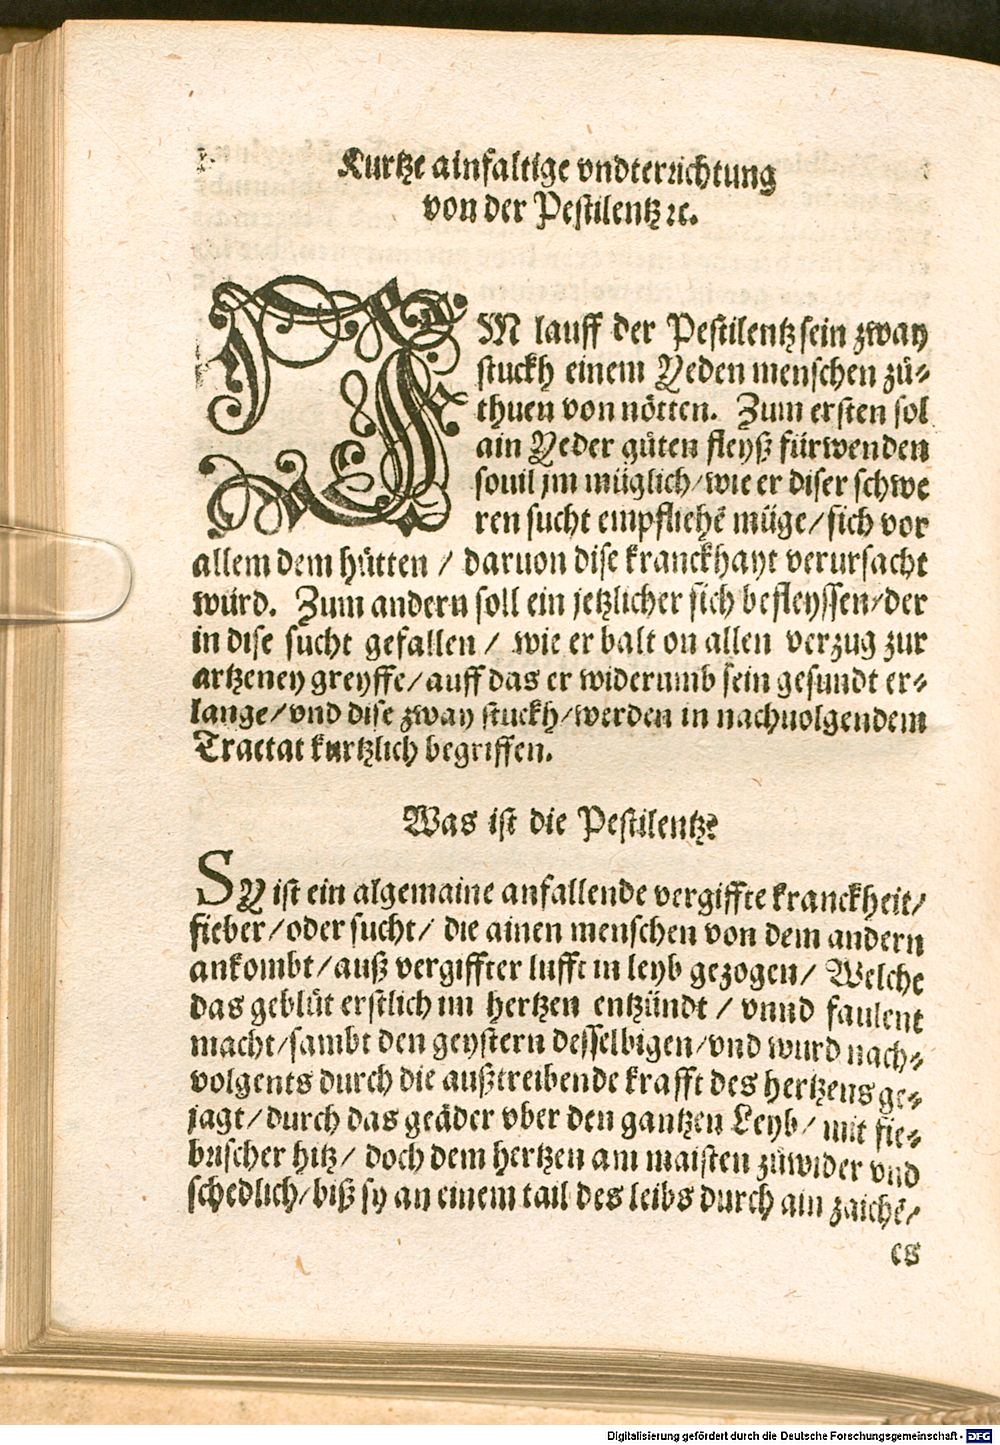 Kurtze ainfaltige vndterrichtung
von der Pestilentz ꝛc.
IM lauff der Pestilentz sein zway
stuckh einem Yeden menschen zů⸗
thuen von nötten. Zum ersten sol
ain Yeder gůten fleyß fürwenden
souil jm müglich/wie er diser schwe
ren sucht empfliehẽ müge/sich vor
allem dem hütten / daruon dise kranckhayt verursacht
würd. Zum andern soll ein jetzlicher sich befleyssen/der
in dise sucht gefallen / wie er balt on allen verzug zur
artzeney greyffe/auff das er widerumb sein gesundt er⸗
lange/vnd dise zway stuckh/werden in nachuolgendem
Tractat kurtzlich begriffen.
Was ist die Pestilentz?
SY ist ein algemaine anfallende vergiffte kranckheit/
fieber/oder sucht/ die ainen menschen von dem andern
ankombt/auß vergiffter lufft in leyb gezogen/ Welche
das geblüt erstlich im hertzen entzündt / vnnd faulent
macht/sambt den geystern desselbigen/vnd wurd nach⸗
volgents durch die außtreibende krafft des hertzens ge⸗
jagt/durch das geäder vber den gantzen Leyb/ mit fie⸗
brischer hitz/ doch dem hertzen am maisten zůwider vnd
schedlich/biß sy an einem tail des leibs durch ain zaichẽ/
es
Digitalisierung gefördert durch die Deutsche Forschungsgemeinschaft - DFG